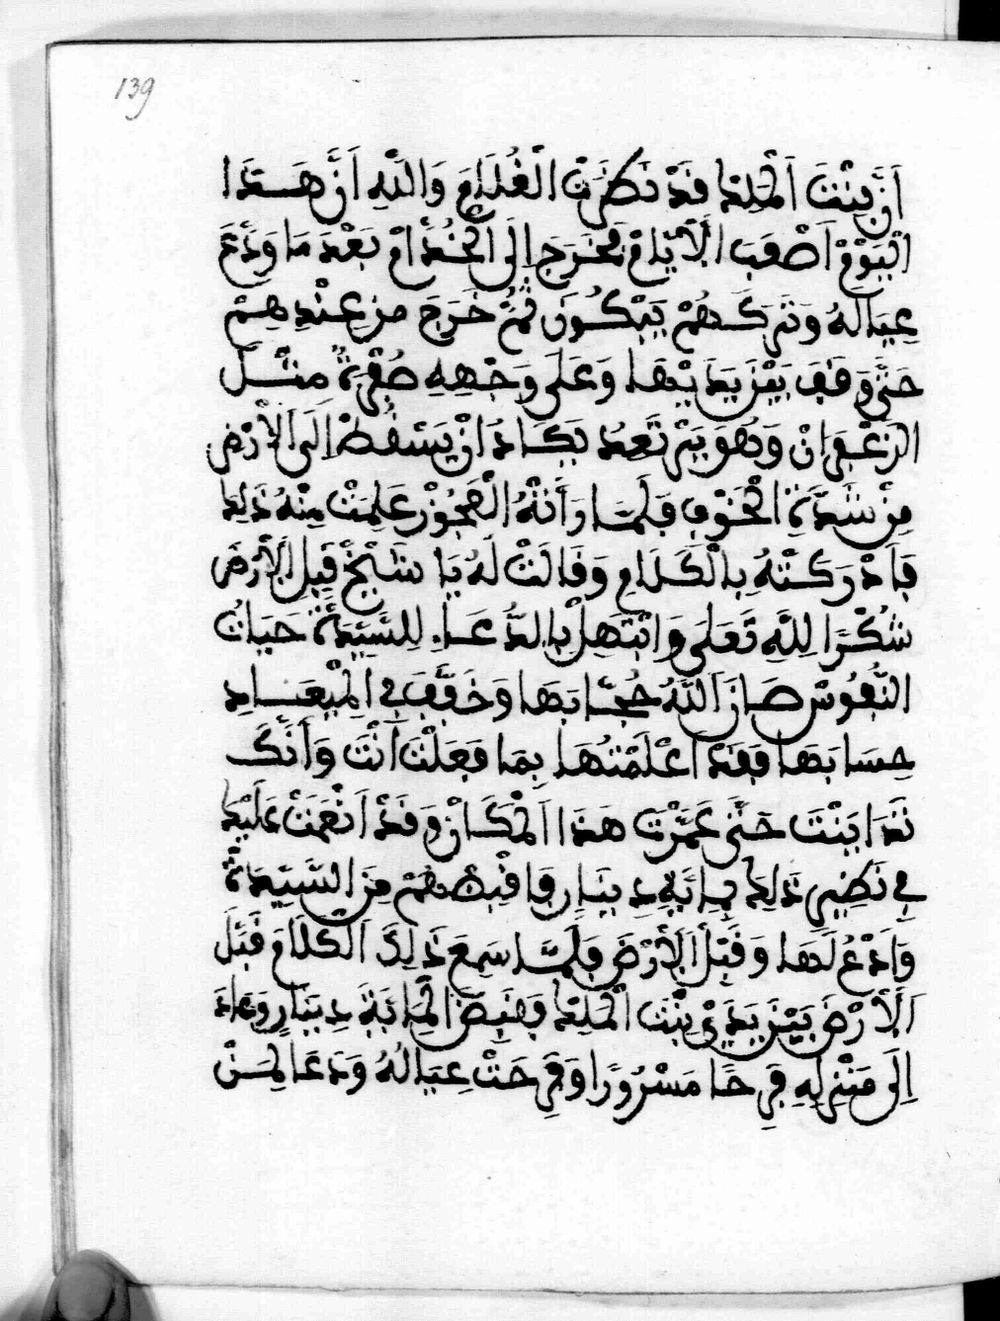 139
أَنَّ بِنْتَ الْمَلِكِ قَدْ نَظَرَتْ الْغُلَامَ وَاللَّهِ أَنَّ هَذَا
الْيَوْمَ أَصْعَبَ الْأَيَّامْ فَخَرَجَ إِلَى الْخُدَّامْ بَعْدَ مَا وَدَّعَ
عِيَالَهُ وَتَرَكَهُمْ يَبْكُونَ ثُمَّ خَرَجَ مِنْ عِنْدِهِمْ
حَتَّى وَقَفَ بَيْنَ يَدَيْهَا وَعَلَى وَجْهِهِ صُفْرَةٌ مِثْلَ
الزَّعْفَرَانْ وَهُوَ يَرْتَعِدُ يَكَادُ انْ يَسْقُطْ إِلَى الْأَرْضِ
مِنْ شِدَّةِ الْخَوْفِ فَلَمَّا رَأَتْهُ الْعَجُوزْ عَلِمَتْ مِنْهُ ذَلِكَ
فَأَدْرَكَتْهُ بِالْكَلَامِ وَقَالَتْ لَهُ يَا شَيْخْ قَبِّلِ الْأَرْضَ
شُكْرًا لِلَّهِ تَعَلَى وَابْتَهِلْ بِالدُّعَاءِ لِلسَّيِّدَةِ حَيَاتُ
النُّفُوسْ صَانَ اللَّهُ حُجَّابَهَا وَخَفَّفَ فِي الْمِيعَادِ
حِسَابَهَا فَقَدْ أَعْلَمْتُهَا بِمَا فَعَلْتَ أَنْتَ وَأَنَّكَ
تَدَايَنْتَ حَتَّى عَمَّرْتَ هَذَا الْمَكَانْ وَقَدْ أَنْعَمَتْ عَلَيْكَ
فِي نَضِيرِ ذَلِكَ بِمِائَةِ دِينَارٍ فَاقْبِضْهُمْ مِنَ السَّيِّدَةْ
وَادْعُ لَهَا وَقَبِّلْ الْأَرْضَ فَلَمَّا سَمِعَ ذَلِكَ الْكَلَامَ قَبَّلَ
الْأَرْضَ بَيْنَ يَدَيْ بِنْتِ الْمَلِكِ وَقَبَضَ الْمِائَةَ دِينَارٍ وَعَادَ
إِلَى مَنْزِلِهِ فَرِحًا مَسْرُورًا وَفَرِحَتْ عِيَالُهُ وَدَعَا لِمَنْ